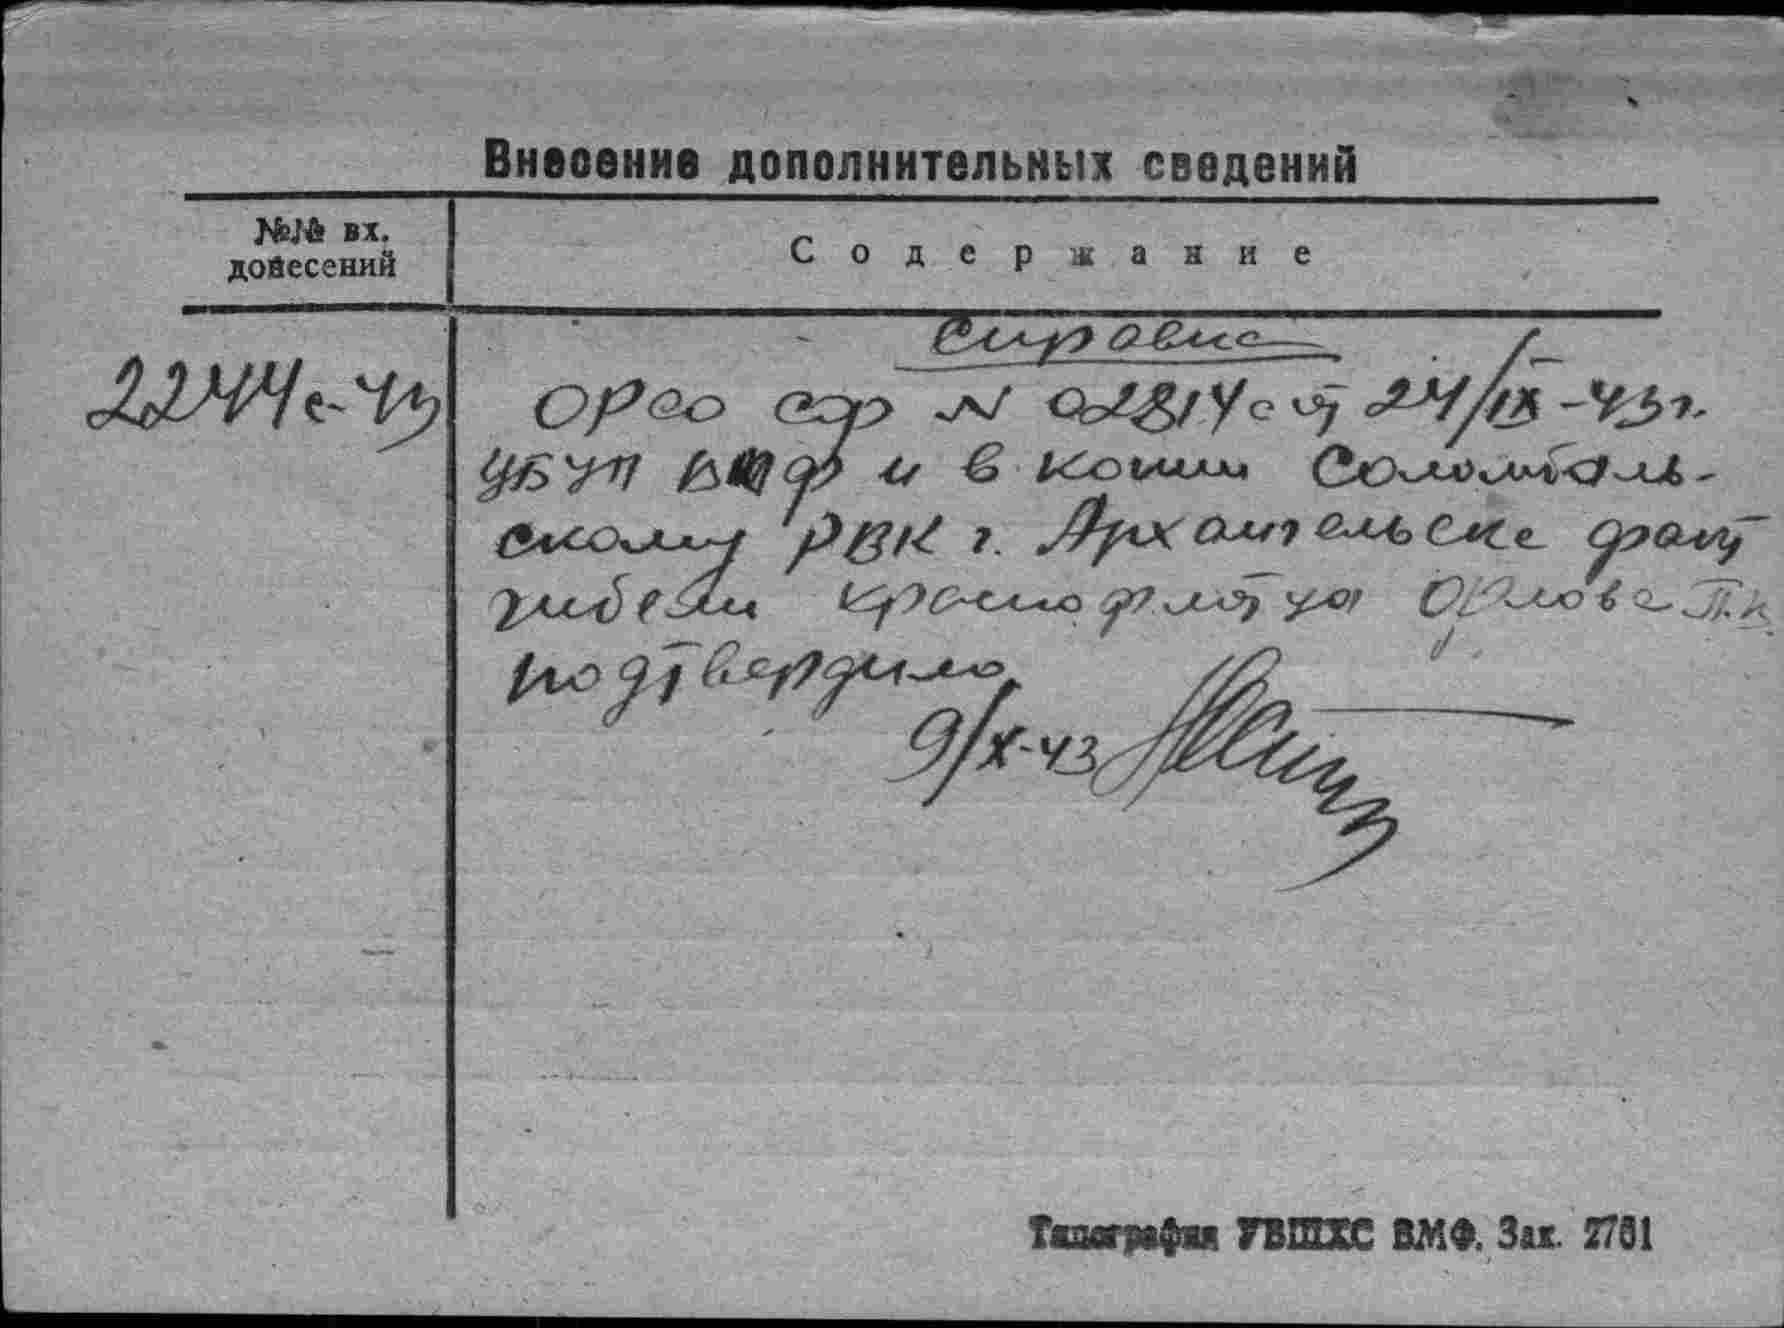 Внесение дополнительных сведений
№№ вх.
донесений
Содержание
Справка
2244с-43
ОРСО СФ N 02814с от 24/IX-43г.
УБУП ВМФ и в копии Соломбаль-
скому РВК г. Архангельска факт
гибели краснофлотца Орлова П.К.
подтвердило.
9/X-43
Типография УВШХС ВМФ. Зак. 2781